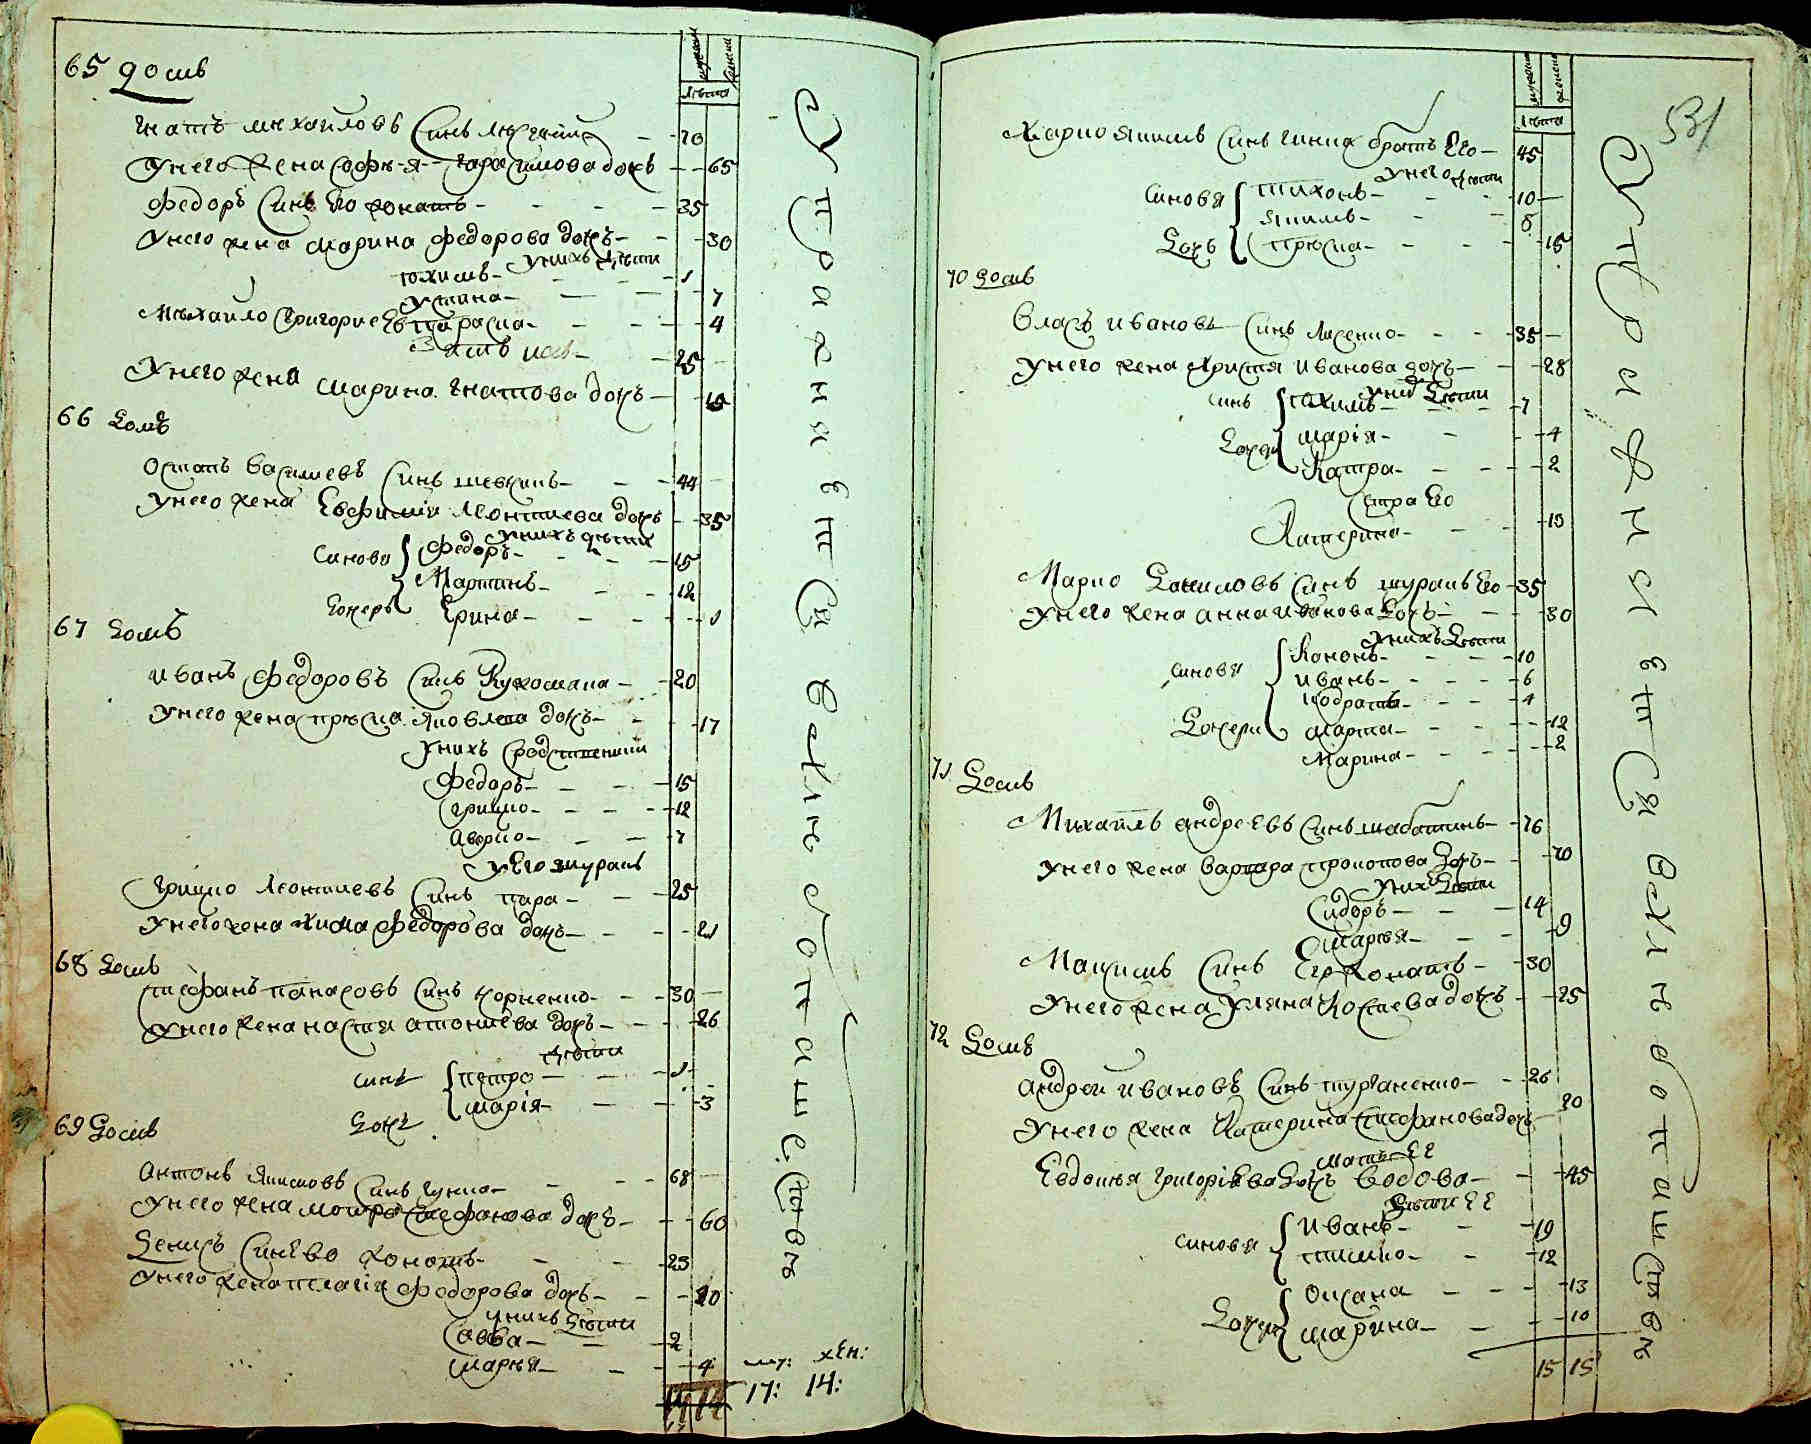 мужеска женска
лѣта
65 домъ
Игнатъ михайловъ Синъ 70
Унего жена Софья Гарасимова дочь 65
Федоръ Синъ Его жонатъ 35
Унего жена марина федорова дочь 30
Унихъ дѣти
юхимъ 1
Устина 7
параска 4
Михайло Григориевъ
зять ихъ 25
Унего жена марина Игнатова дочь 18
66 домъ
Остапъ василиевъ Синъ шевчикъ 44
Унего жена Евфимия Леонтиева дочь 35
Унихъ дѣти
Синовя Федоръ 15
Мартинъ 12
дочеръ Ерина 1
67 домъ
иванъ федоровъ Синъ 20
Унего жена приска Яковлева дочь 17
Унихъ Сродственики
Федоръ 15
Грицко 12
Аврамко 7
У Его шуринъ
Грицко Леонтиевъ Синъ 25
Унего жена химка федорова дочь 21
68 домъ
Стефанъ панасовъ Синъ корнѣенко 30
Унего жена настя антониева дочь 26
дѣти
Синъ петро 1
дочь мария 3
69 домъ
Антонъ якимовъ Синъ гунка 68
Унего жена мотря Стефанова дочь 60
Денисъ Синъ Ево жонатъ 23
Унего жена пелагия федорова дочь 20
Унихъ дѣти
Савва 2
маруся 4
17 14
муж: жен:
17: 14:
Упражняется в хлебопашествѣ
531
мужеска женска
лѣта
Марко якимовъ Синъ гунка братъ Его 45
Унего дѣти
Синовя тихонъ 10
якимъ 6
дочь приска 15
70 домъ
Власъ ивановъ Синъ лисенко 35
Унего жена христя иванова дочь 28
Унихъ дѣти
Синъ юхимъ 7
дочери мария 4
Катря 2
Сестра Его
Катерина 13
Марко даниловъ Синъ шуринъ Его 35
Унего жена анна иванова дочь 30
Унихъ дѣти
Синовя Кононъ 10
иванъ 6
кодратъ 4
дочери марта 12
Марина 2
71 домъ
Михайлъ андреевъ Синъ 76
Унего жена варвара прокопова дочь 70
Унихъ дѣти
Сидоръ 14
маруся 9
Максимъ Синъ Его жонатъ 30
Унего жена Уляна Костева дочь 25
72 домъ
Андрей ивановъ Синъ 26
Унего жена Катерина Стефанова дочь 20
мать ЕЕ
Евдокия григориева дочь вдова 45
дѣти ЕЕ
Синовя иванъ 19
тимко 12
дочери Оксана 13
марина 10
15 15
Упражняется в хлебопашествѣ